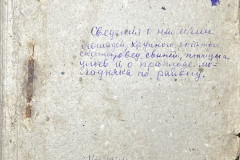 Сведения о наличии
лошадей, крупного рогатого
скота, овец, свиней, птицы и
ульев и о приплоде мо-
лодняка по району.